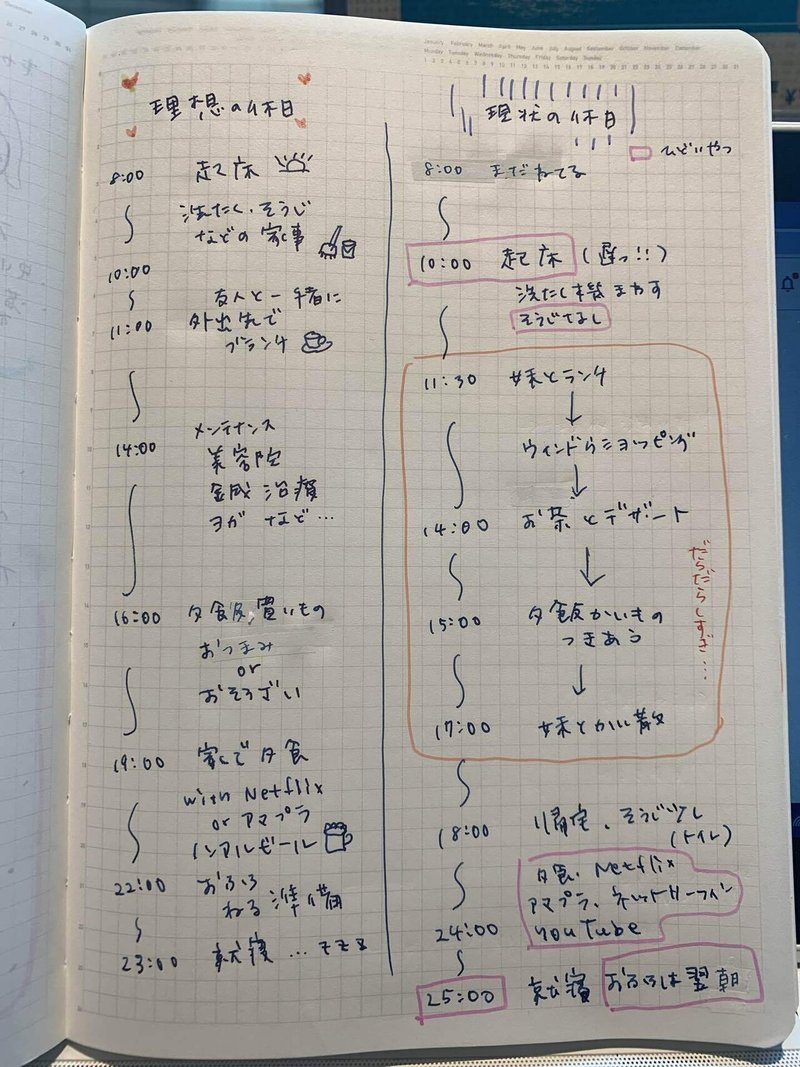 理想の休日
8:00 起床
洗たく、そうじ
などの家事
10:00
友人と一緒に
11:00 外出先で
ブランチ
メンテナンス
14:00 美容院
鍼治療
ヨガ など…
16:00 夕飯買いもの
おつまみ
or
おそうざい
19:00 家で夕食
with Netflix
or アマプラ
ノンアルビール
22:00 おふろ
ねる準備
23:00 就寝 … zzz
January February March April May June July August September October November December
Monday Tuesday Wednesday Thursday Friday Saturday Sunday
1 2 3 4 5 6 7 8 9 10 11 12 13 14 15 16 17 18 19 20 21 22 23 24 25 26 27 28 29 30 31
現状の休日
ひどいやつ
8:00 まだねてる
10:00 起床 (遅っ!!)
洗たく機まわす
そうじなし
11:30 妹とランチ
ウィンドウショッピング
14:00 お茶とデザート
だらだらしすぎ…
15:00 夕飯かいもの
つきあう
17:00 妹とかい散
18:00 帰宅、そうじ少し
(トイレ)
夕食、Netflix
アマプラ、ネットサーフィン
24:00 YouTube
25:00 就寝 おふろは翌朝